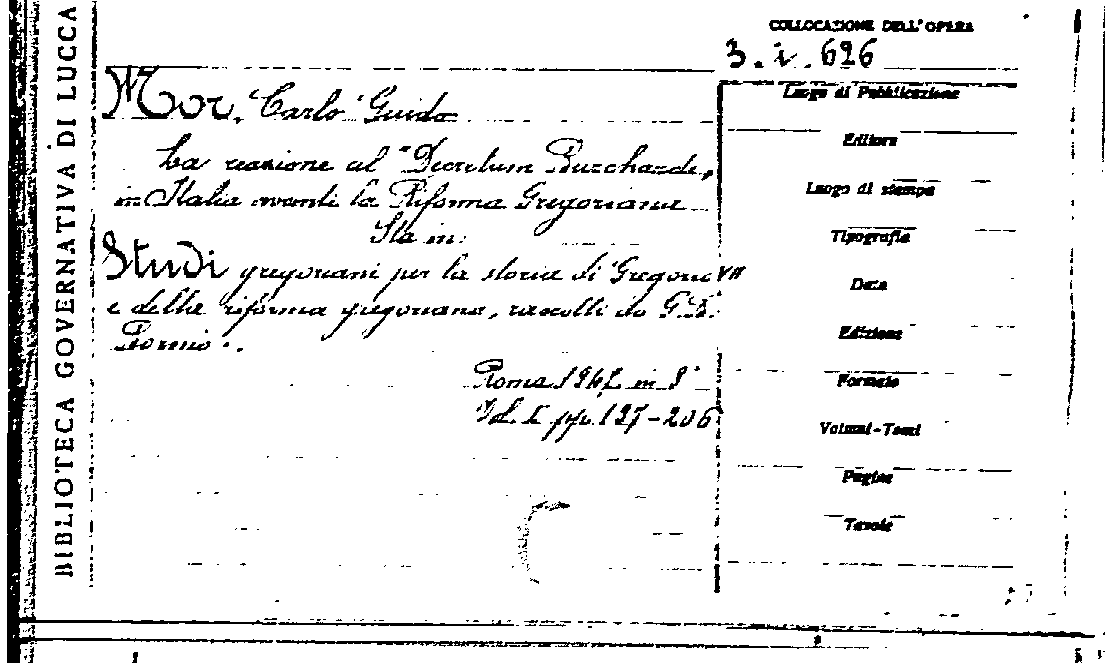 BIBLIOTECA GOVERNATIVA DI LUCCA
COLLOCAZIONE DELL'OPERA
3. i. 626
Mor, Carlo Guido
La reazione al "Decretum Burchardi"
in Italia avanti la Riforma Gregoriana
Sta in:
Studi gregoriani per la storia di Gregorio VII
e della riforma gregoriana, raccolti da G.B.
Borino..
Roma 1947 in 8°
Vol. I pp. 197-206
Luogo di Pubblicazione
Editore
Luogo di stampa
Tipografia
Data
Edizione
Formato
Volumi-Tomi
Pagine
Tavole